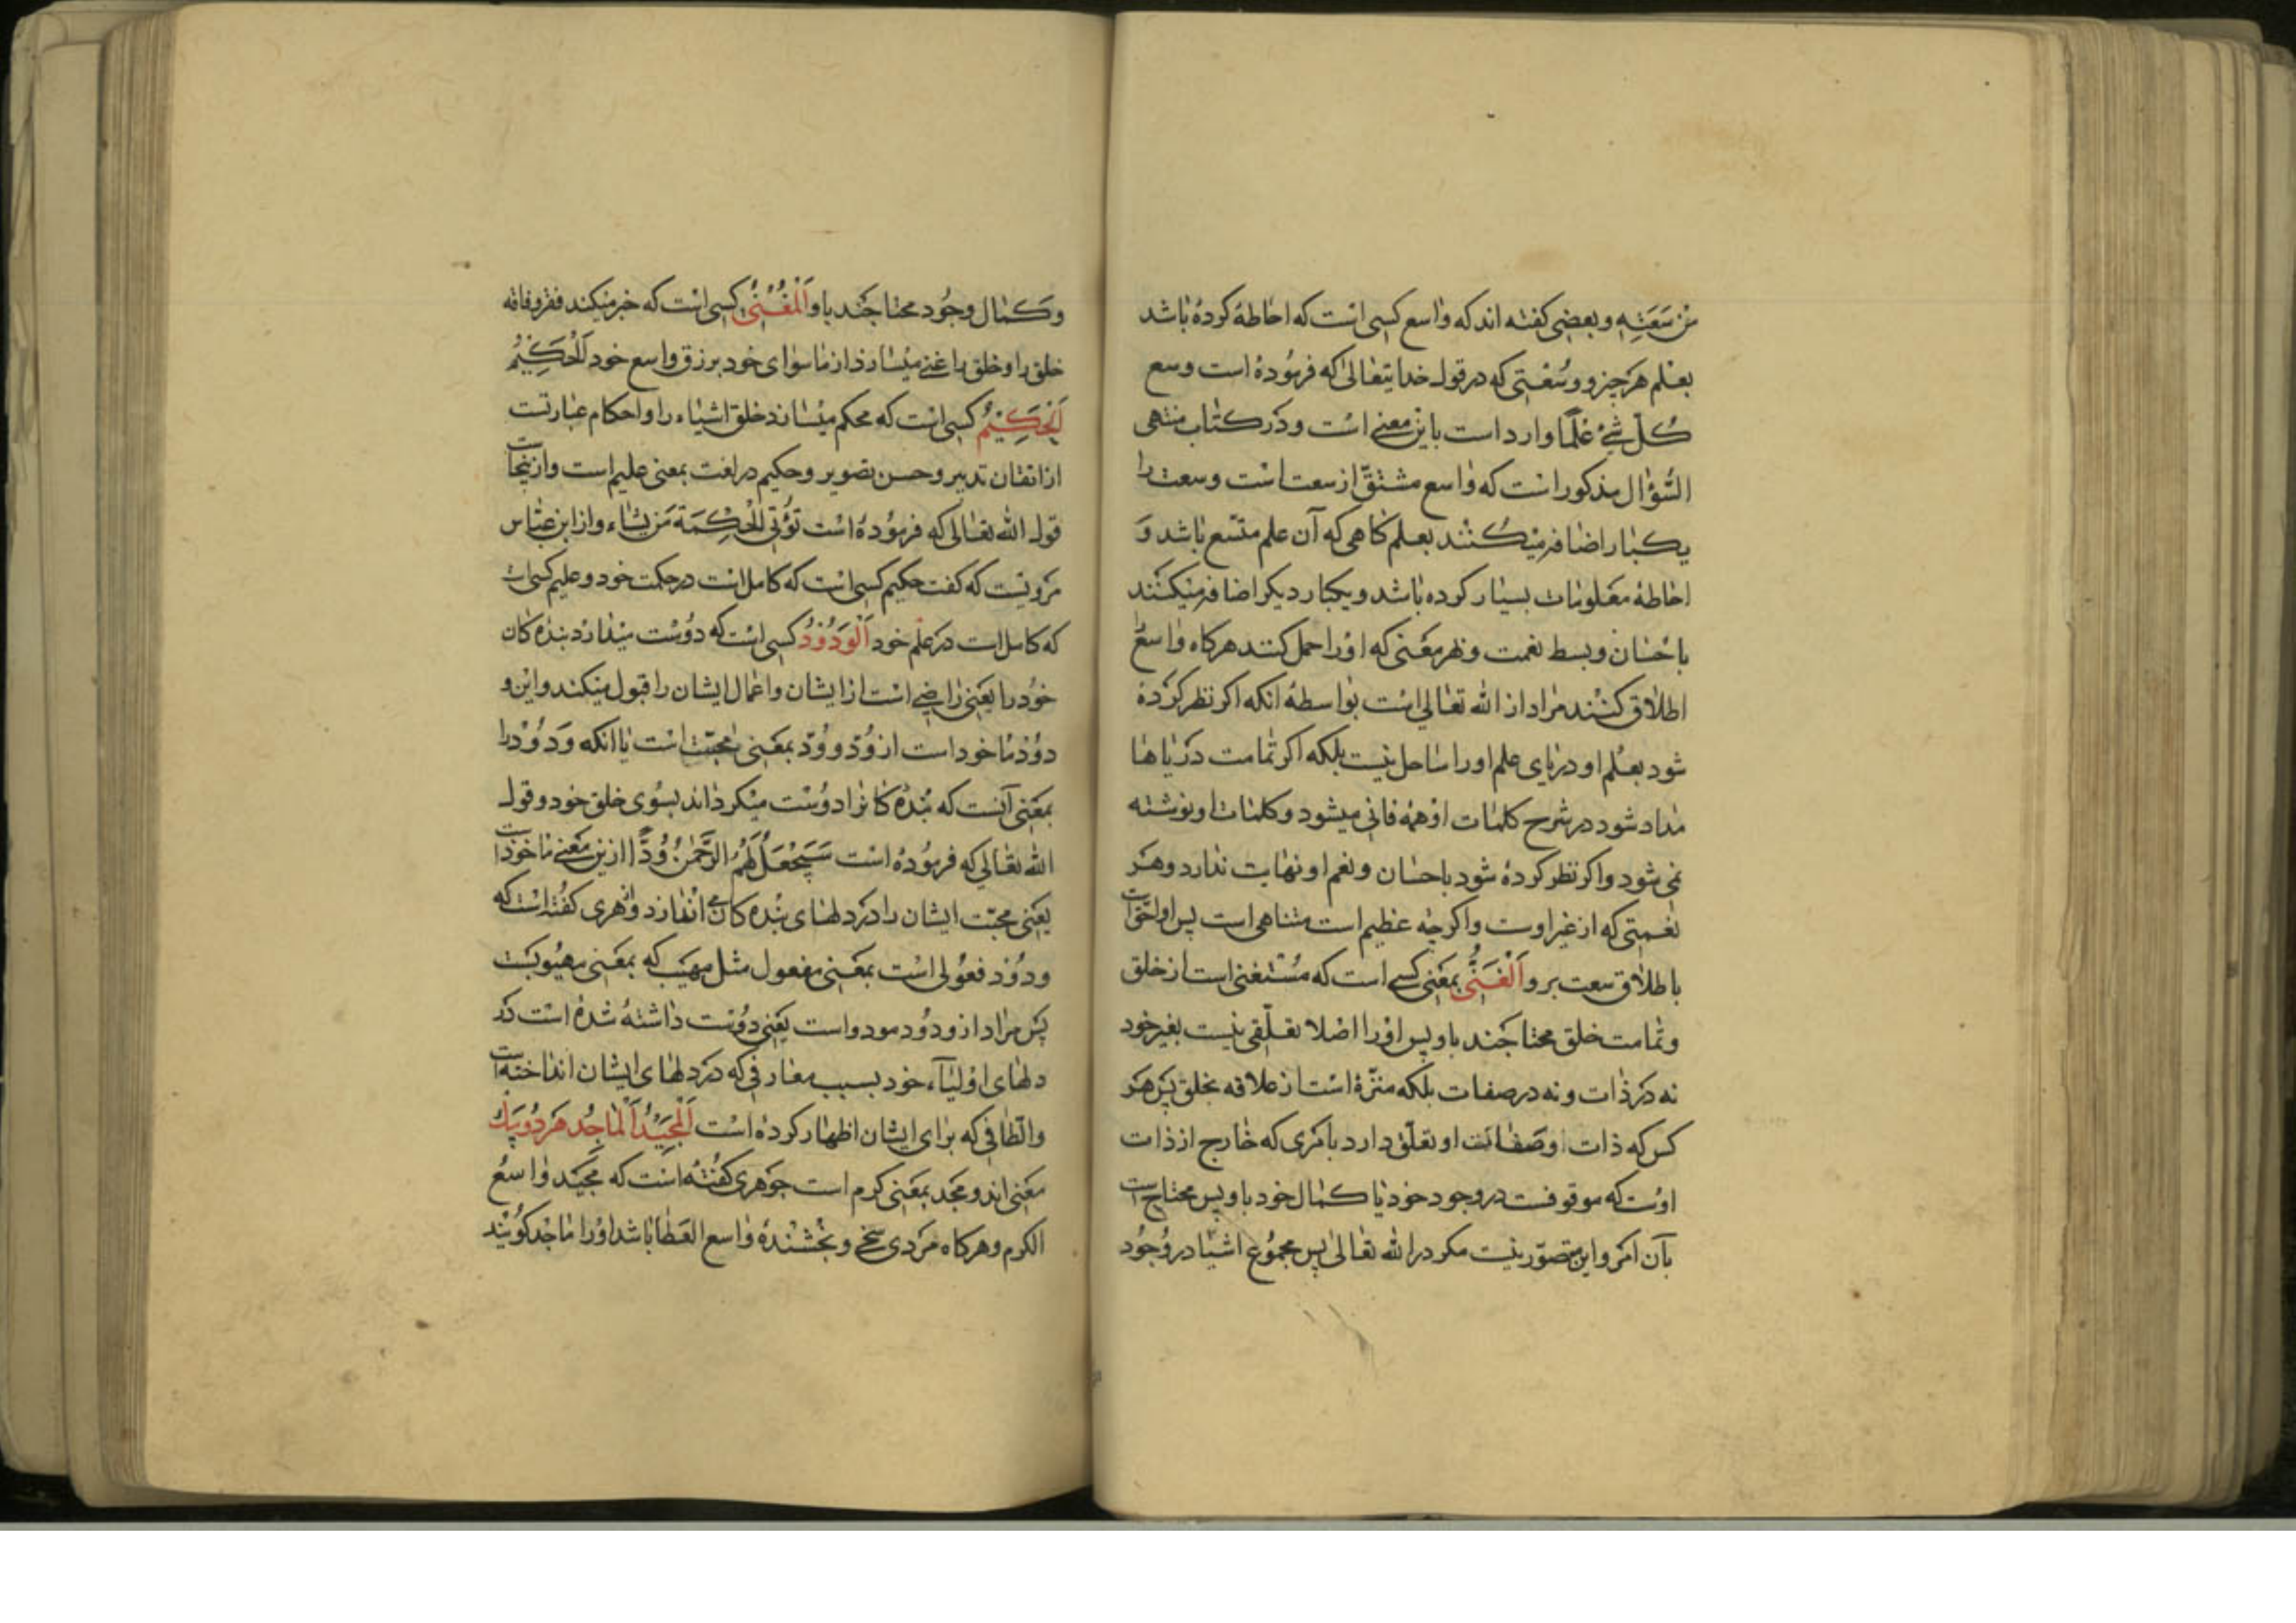 من سَعَتِهِ و بعضی کفته اند که واسع کسی است که احاطهٔ کرده باشد
بعلم هر چیز و وسعتی که در قول خدایتعالی که فرموده است وسع
کُلّ شیٔ عِلْمًا وارد است باین معنی است و در کتاب منتهی
السّؤال مذکور است که واسع مشتقّ از سعت است و سعت را
یکبار اضافه میکنند بعلم کاهی که آن علم متّسع باشد وَ
احاطهٔ معلومات بسیار کرده باشد و یکبار دیکر اضافه میکنند
باحسان و بسط نعمت و بهر معنی که او را حمل کنند هرکاه واسع
اطلاق کنند مراد از الله تعالی است بواسطهٔ انکه اکر نظر کرده
شود بعلم او دریای علم او را ساحل نیست بلکه اکر تمامت دریاها
مداد شود در شرح کلمات او همه فانی میشود و کلمات او نوشته
نمی شود و اکر نظر کرده شود باحسان و نعم او نهایت ندارد و هر
نعمتی که از غیر اوست و اکرچه عظیم است متناهی است پس او احقّ است
باطلاق سعت برو اَلْغَنِیُّ بمعنی کسی است که مستغنی است از خلق
و تمامت خلق محتاجند باو پس او را اصلا تعلّقی نیست بغیر خود
نه در ذات و نه در صفات بلکه منزّه است از علاقه بخلق پس هر
کس که ذات او صفات او تعلّق دارد بامری که خارج از ذات
اوست که موقوفست در وجود خود یا کمال خود باو پس محتاج است
بآن امر و این متصوّر نیست مکر در الله تعالی پس مجموع اشیا در وجود
و کمال وجود محتاجند باو اَلْمُغْنِیُ کسی است که خبر میکند فقر و فاقه
خلق را و خلق را غنی میسازد از ماسوای خود برزق واسع خود اَلْحَکِیْمُ
اَلْحَکِیْمُ کسی است که محکم میسازد خلق اشیاء را و احکام عبارتست
از اتقان تدبیر و حسن تصویر و حکیم در لغت بمعنی علیم است و ازینجاست
قول الله تعالی که فرموده است تؤتی الْحِکْمَةَ مَن یشاء و از ابن عبّاس
مرویست که کفت حکیم کسی است که کامل است در حکمت خود و علیم کسی است
که کامل است در علم خود اَلْوَدُوْدُ کسی است که دوست میدارد بنده کان
خود را یعنی راضی است از ایشان و اعمال ایشان را قبول میکند و این و
دوْدْ ماخود است از وُدّ و وُدّ بمعنی محبّت است یا انکه وَدُوْد را
بمعنی آنست که بنده کانرا دوست میکرداند بسوی خلق خود و قول
الله تعالی که فرموده است سَیَجْعَلُ لَهُمُ الرَّحْمٰنُ وُدًّا ازین معنی ماخوذ است
یعنی محبّت ایشان را در دلهای بنده کان می اندازد و ازهری کفته است که
ودود فعولی است بمعنی مفعول مثل مهیب که بمعنی مهیوبست
پس مراد از ودود مودود است یعنی دوست داشته شده است در
دلهای اولیآء خود بسبب معارفی که در دلهای ایشان انداخته است
و الطافی که برای ایشان اظهار کرده است اَلْمَجِیْدُ اَلْمَاجِدُ هر دو بیک
معنی اند و مجد بمعنی کرم است جوهری کفته است که مجید واسع
الکرم و هرکاه مردی سخی و بخشندهٔ واسع العطا باشد او را ماجد کویند